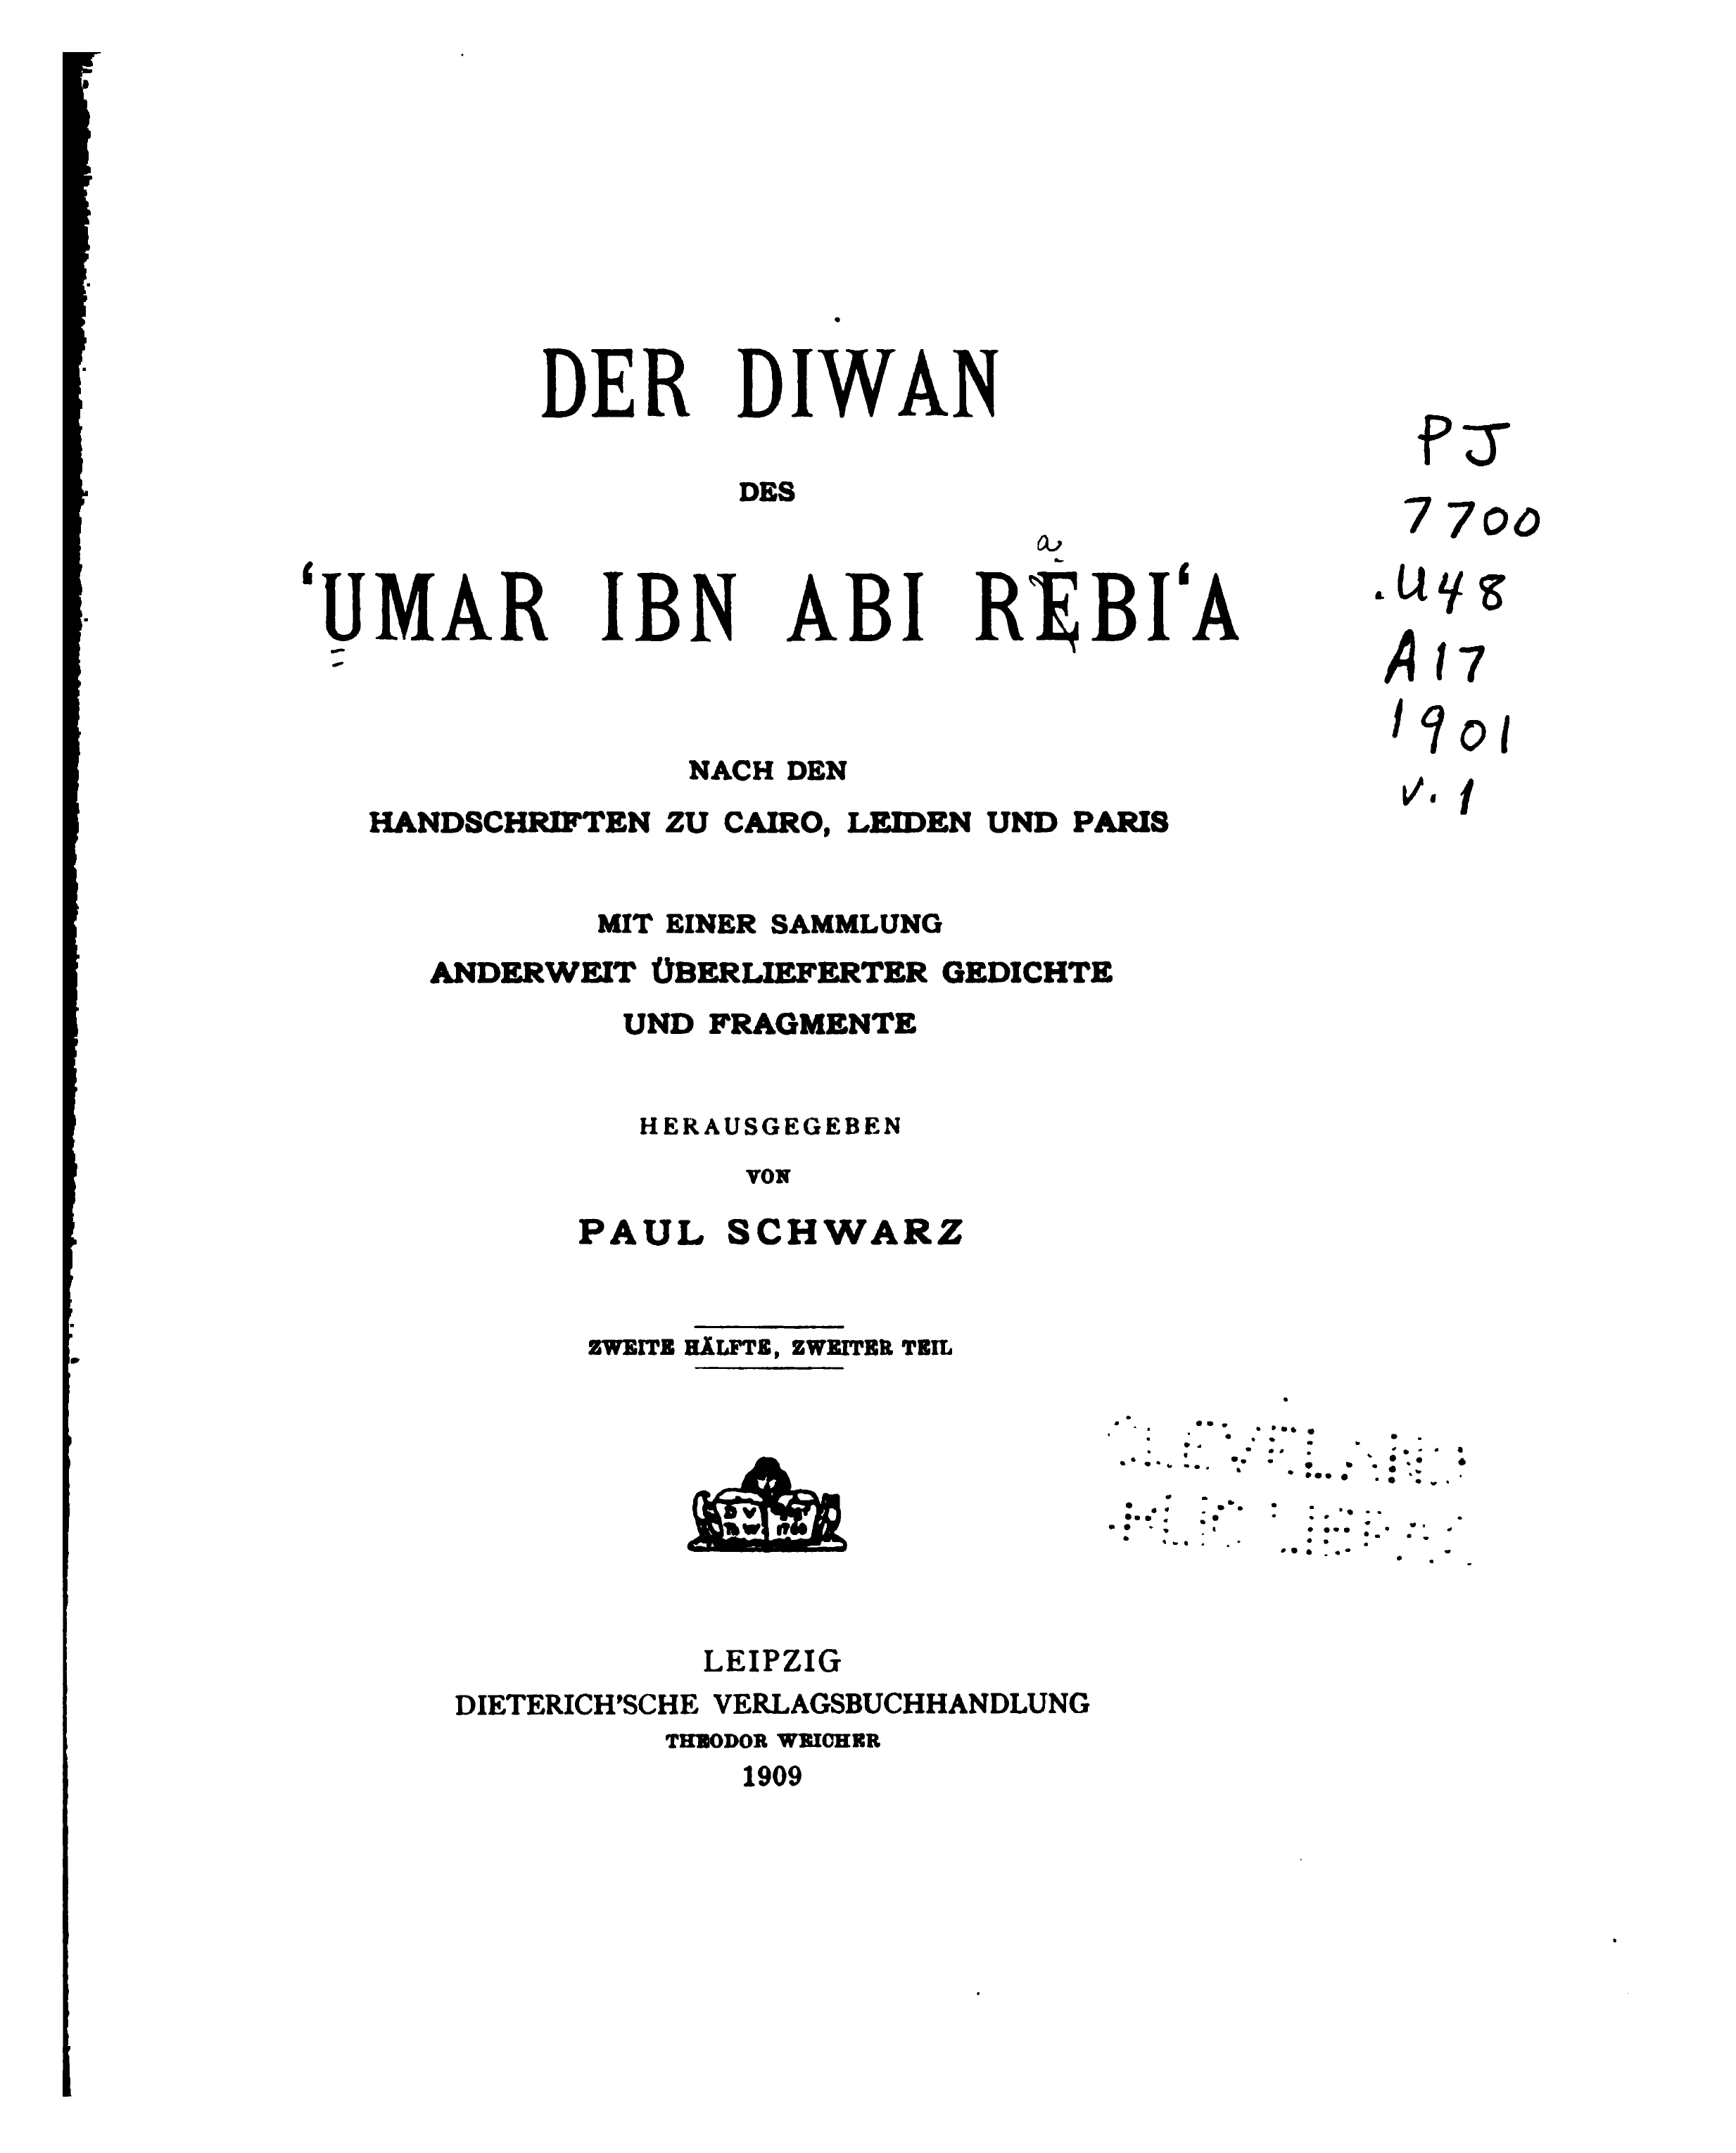 DER DIWAN
DES
‘UMAR IBN ABI REBI‘A
a
NACH DEN
HANDSCHRIFTEN ZU CAIRO, LEIDEN UND PARIS
MIT EINER SAMMLUNG
ANDERWEIT ÜBERLIEFERTER GEDICHTE
UND FRAGMENTE
HERAUSGEGEBEN
VON
PAUL SCHWARZ
ZWEITE HÄLFTE, ZWEITER TEIL
LEIPZIG
DIETERICH'SCHE VERLAGSBUCHHANDLUNG
THEODOR WEICHER
1909
PJ
7700
.U48
A17
1901
v. 1
CLEVELAND